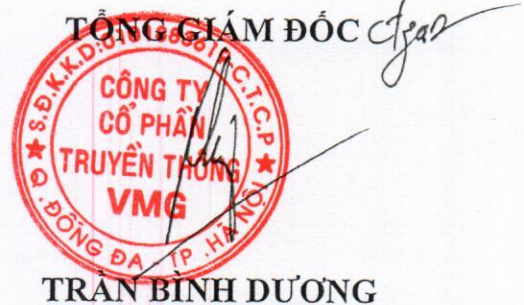 TỔNG GIÁM ĐỐC
S.Đ.K.K.D: C.T.C.P
CÔNG TY
CỔ PHẦN
TRUYỀN THÔNG
VMG
Q. ĐỐNG ĐA - TP. HÀ NỘI
TRẦN BÌNH DƯƠNG